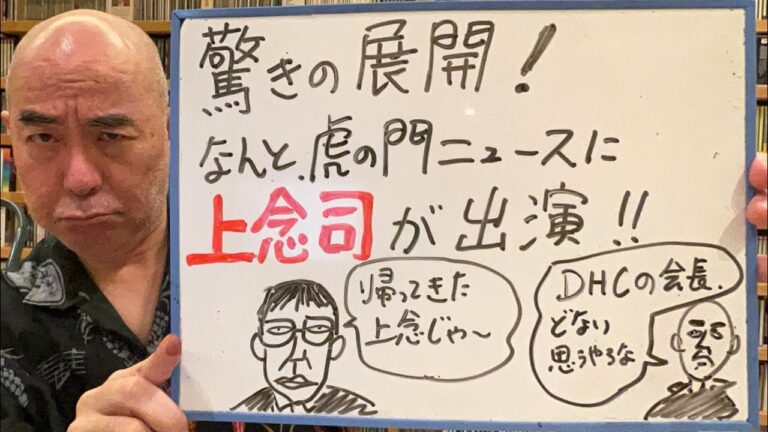 驚きの展開！
なんと、虎の門ニュースに
上念司が出演!!
帰ってきた
上念じゃ〜
DHCの会長、
どない
思うやろな